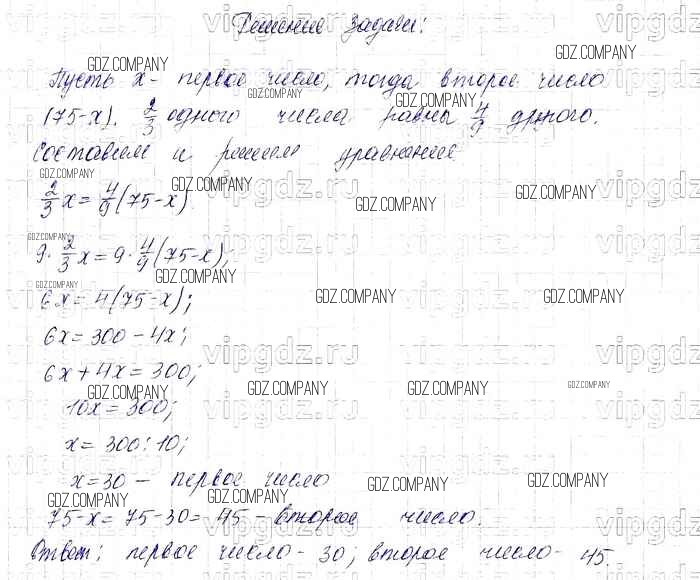 Решение задачи:
Пусть x - первое число, тогда второе число
(75-x). 2/3 одного числа равна 4/9 другого.
Составим и решим уравнение
2/3 x = 4/9 (75-x)
9 · 2/3 x = 9 · 4/9 (75-x);
6x = 4(75-x);
6x = 300 - 4x;
6x + 4x = 300;
10x = 300;
x = 300:10;
x = 30 - первое число
75-x = 75-30 = 45 - второе число.
Ответ: первое число - 30; второе число - 45.
vipgdz.ru
GDZ.COMPANY